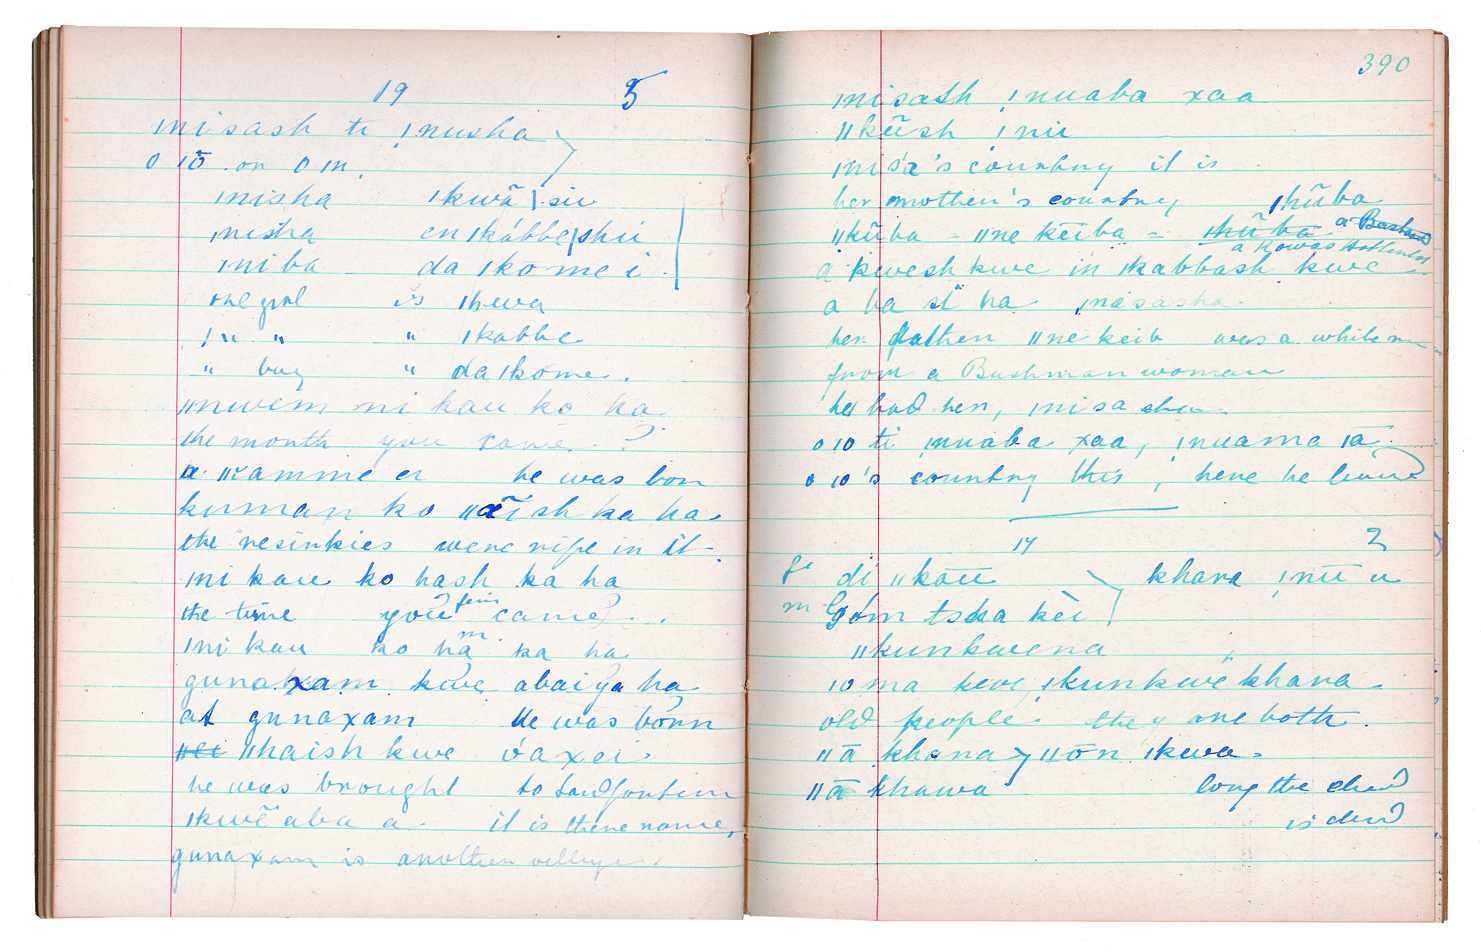 19 5
ınisash ti ǃnusha
0 ıō on 0 m.
ınisha ıkwã sii
ınisha en ıkábbe shii
ıniba da ıkomei
one girl is ıkwa
ı " " " ıkabbe
" boy " da ıkome.
ıınwem ni kau ko ha
the month you came. ?
he was born
kuman ko ıı ish ka ha
the resinkies were ripe in it.
ıni kau ko hash ka ha
the time you fem came.
ıni kau ko hā m. ka ha
gunaxam kwe abaiya ha
at gunaxam he was born
ııhaish kwe óaxei.
he was brought to Sandfontein
ıkwẽ aba a it is there name,
gunaxam is another village.
390
ınisash ǃnuaba xaa
ıı kũsh ǃnu
ınisa's country it is
her mother's country ıkũba
ıı kũba = ıı ne keiba = ıkũba a Bastard
a Kowas Hottentot
a kwesh kwe in ıkabbash kwe
a ba si ha ınisasha
her father ıı ne keib was a white
from a Bushman woman
he had her, ınisa
0 ıo ti ınuaba xaa, ınuama ıā
0 ıo's country this, here he
14 2
f. di ıı kaū khara ǃnū u
m Góm tsha kèi
ıı kunkwena "
ıo ma kwe, ıkunkwe khara
old people. they are both.
ıı ā khana ıı ōn ıkwa.
ıı ā khawa long the child
is dead